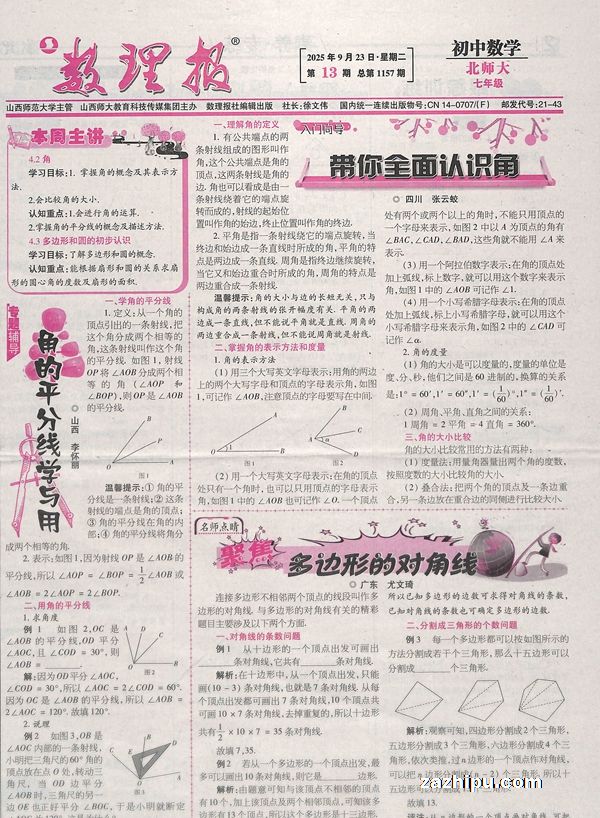 数理报®
2025年9月23日·星期二
第13期 总第1157期
初中数学
北师大
七年级
山西师范大学主管 山西师大教育科技传媒集团主办 数理报社编辑出版 社长:徐文伟 国内统一连续出版物号:CN 14-0707/(F) 邮发代号:21-43
本周主讲
4.2 角
学习目标:1. 掌握角的概念及其表示方
法.
2.会比较角的大小.
认知重点:1.会进行角的运算.
2.掌握角的平分线的概念及描述方法.
4.3 多边形和圆的初步认识
学习目标:了解多边形和圆的概念.
认知重点:能根据扇形和圆的关系求扇
形的圆心角的度数及扇形的面积.
专题辅导
角的平分线学与用
◎ 山西 李怀丽
一、学角的平分线
1. 定义:从一个角的
顶点引出的一条射线,把
这个角分成两个相等的
角,这条射线叫作这个角
的平分线. 如图 1,射线
OP 将∠AOB 分成两个相
等的角(∠AOP 和
∠BOP),则 OP 是∠AOB
的平分线.
B
P
O
A
图 1
温馨提示:① 角的平
分线是一条射线;② 这条
射线的端点是角的顶点;
③ 角的平分线在角的内
部;④ 角的平分线将角分
成两个相等的角.
2. 表示:如图 1,因为射线 OP 是∠AOB 的
平分线,所以∠AOP = ∠BOP = 1/2∠AOB 或
∠AOB = 2∠AOP = 2∠BOP.
二、用角的平分线
1. 求角度
例 1 如图 2,OC 是
∠AOB 的平分线,OD 平分
∠AOC,且∠COD = 30°,则
∠AOB = ______.
A
D
C
O
B
图 2
解:因为 OD 平分∠AOC,
∠COD = 30°,所以∠AOC = 2∠COD = 60°.
因为 OC 是∠AOB 的平分线,所以∠AOB =
2∠AOC = 120°. 故填 120°.
2. 说理
例 2 如图 3,OB 是
∠AOC 内部的一条射线,
小明把三角尺的 60° 角的
顶点放在点 O 处,转动三
角尺,当 OD 边平分
∠AOB 时,三角尺的另一
边 OE 也正好平分∠BOC,于是小明就断定
C
E
B
D
O
A
图 3
一、理解角的定义
1. 有公共端点的两
条射线组成的图形叫作
角,这个公共端点是角的
顶点,这两条射线是角的
边. 角也可以看成是由一
条射线绕着它的端点旋
转而成的,射线的起始位
置叫作角的始边,终止位置叫作角的终边.
2. 平角是指一条射线绕它的端点旋转,当
终边和始边成一条直线时所成的角,平角的特
点是两边成一条直线. 周角是指终边继续旋转,
当它又和始边重合时所成的角,周角的特点是
两边重合成一条射线.
温馨提示:角的大小与边的长短无关,只与
构成角的两条射线的张开幅度有关. 平角的两
边成一条直线,但不能说平角就是直线. 周角的
两边重合成一条射线,但不能说周角就是射线.
二、掌握角的表示方法和度量
1. 角的表示方法
(1) 用三个大写英文字母表示:用角的两边
上的两个大写字母和顶点的字母表示角,如图
1,可记作∠AOB,注意顶点的字母要写在中间.
B
1
O
A
图 1
B
C
A
α
D
图 2
(2) 用一个大写英文字母表示:在角的顶点
处只有一个角时,也可以只用顶点的字母表示
角,如图 1 中的∠AOB 也可记作∠O. 一个顶点
入门向导
带你全面认识角
◎ 四川 张云蛟
处有两个或两个以上的角时,不能只用顶点的
一个字母来表示,如图 2 中以 A 为顶点的角有
∠BAC,∠CAD,∠BAD,这些角就不能用∠A 来
表示.
(3) 用一个阿拉伯数字表示:在角的顶点处
加上弧线,标上数字,就可以用这个数字来表示
角,如图 1 中的∠AOB 可记作∠1.
(4) 用一个小写希腊字母表示:在角的顶点
处加上弧线,标上小写希腊字母,就可以用这个
小写希腊字母来表示角,如图 2 中的∠CAD 可
记作∠α.
2. 角的度量
(1) 角的大小是可以度量的,度量的单位是
度、分、秒,他们之间是 60 进制的,换算的关系
是:1° = 60′,1′ = 60″,1′ = (1/60)°,1″ = (1/60)′.
(2) 周角、平角、直角之间的关系:
1 周角 = 2 平角 = 4 直角 = 360°.
三、角的大小比较
角的大小比较常用的方法有两种:
(1) 度量法:用量角器量出两个角的度数,
按照度数的大小比较角的大小.
(2) 叠合法:把两个角的顶点及一条边重
合,另一条边放在重合边的同侧进行比较大小.
名师点睛
聚焦多边形的对角线
◎ 广东 尤文琦
连接多边形不相邻两个顶点的线段叫作多
边形的对角线. 与多边形的对角线有关的精彩
题目主要涉及以下两个方面.
一、对角线的条数问题
例 1 从十边形的一个顶点出发可画出
______条对角线,它共有______条对角线.
解析:在十边形中,从一个顶点出发,只能
画(10 - 3)条对角线,也就是 7 条对角线. 从每
个顶点出发都可画出 7 条对角线,10 个顶点共
可画 10 × 7 条对角线,去掉重复的,所以十边形
共有 1/2 × 10 × 7 = 35 条对角线.
故填 7,35.
例 2 若从一个多边形的一个顶点出发,最
多可以画出 10 条对角线,则它是______边形.
解析:由题意可知与该顶点不相邻的顶点
有 10 个,加上该顶点及两个相邻顶点,可知该多
边形有 13 个顶点,所以这个多边形是十三边形.
所以已知多边形的边数可求得对角线的条数,
已知对角线的条数也可确定多边形的边数.
二、分割成三角形的个数问题
例 3 每一个多边形都可以按如图所示的
方法分割成若干个三角形,那么十五边形可以
分割成______个三角形.
解析:观察可知,四边形分割成 2 个三角形,
五边形分割成 3 个三角形,六边形分割成 4 个三
角形,依次类推,过 n 边形的一个顶点作对角线,
可以把 n 边形分割成(n - 2)个三角形. 所以十
五边形可以分割成 13 个三角形.
故填 13.
zazhipu.com